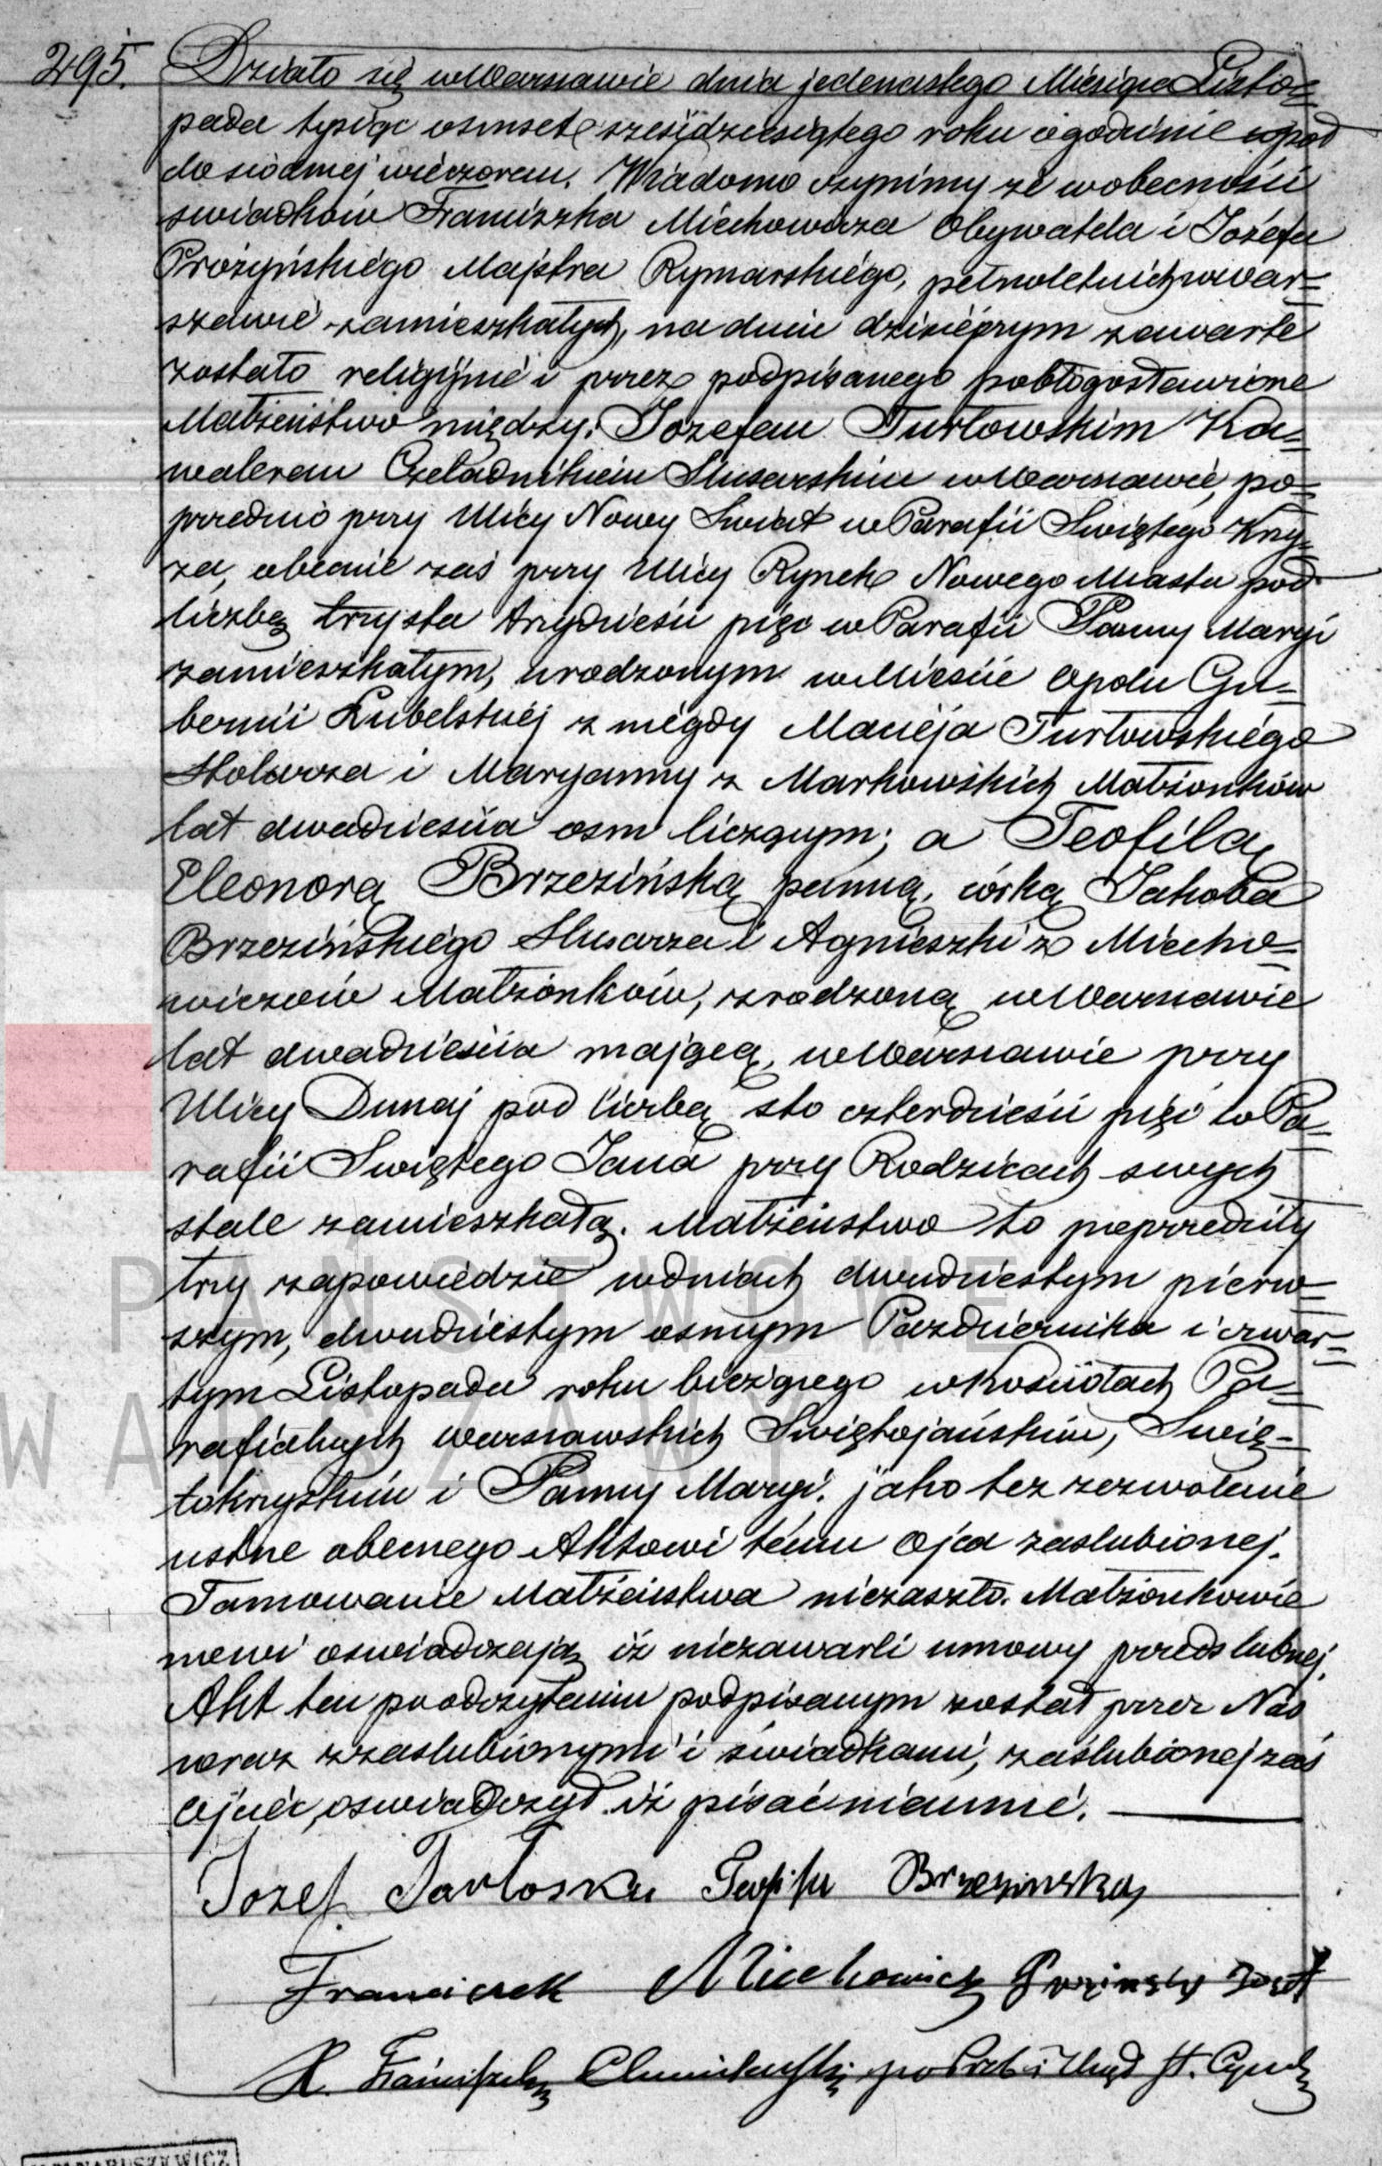 295. Działo się w Warszawie dnia jedenastego Miesiąca Listo=
pada tysiąc osmset sześćdziesiątego roku o godzinie wpół
do siódmej wieczorem. Wiadomo czynimy że w obecności
swiadków Franciszka Miechowicza Obywatela i Józefa
Prożyńskiego Majstra Rymarskiego, pełnoletnich w War=
szawie zamieszkałych, na dniu dzisiejszym zawarte
zostało religijnie i przez podpisanego pobłogosławione
Małżeństwo między: Józefem Turłowskim Ka=
walerem Czeladnikiem Slusarskim w Warszawie, po=
przednio przy Ulicy Nowy Swiat w Parafii Swiętego Krzy=
ża, obecnie zaś przy Ulicy Rynek Nowego Miasta pod
liczbą trzysta trzydzieści pięć w Parafii Panny Maryi
zamieszkałym, urodzonym w Mieście Opolu Gu=
bernii Lubelskiej z niegdy Macieja Turłowskiego
Stolarza i Maryanny z Markowskich Małżonków
lat dwadzieścia osm liczącym; a Teofilą
Eleonorą Brzezińską panną, córką Jakoba
Brzezińskiego Slusarza i Agnieszki z Miecho=
wiczów Małżonków, zrodzoną w Warszawie
lat dwadzieścia mającą, w Warszawie przy
Ulicy Dunaj pod liczbą sto czterdzieści pięć w Pa=
rafii Swiętego Jana przy Rodzicach swych
stale zamieszkałą. Małżeństwo to poprzedziły
trzy zapowiedzie w dniach dwudziestym pierw=
szym, dwudziestym osmym Października i czwar=
tym Listopada roku bieżącego w Kościołach Pa=
rafialnych warszawskich Swiętojańskim, Swię=
tokrzyskim i Panny Maryi, jako też zezwolenie
ustne obecnego Aktowi temu Ojca zaślubionej.
Tamowanie Małżeństwa niezaszło. Małżonkowie
nowi oświadczają iż niezawarli umowy przedslubnej.
Akt ten po odczytaniu podpisanym został przez Nas
wraz z zaslubionymi i świadkami, zaślubionej zaś
ojciec, oświadczył iż pisać nieumie.
Jozef Turłoski Teofila Brzezinska
Franciszek Miechowicz Prozinsky Jozef
X. Franciszek
PAŃSTWOWE
WARSZAWY